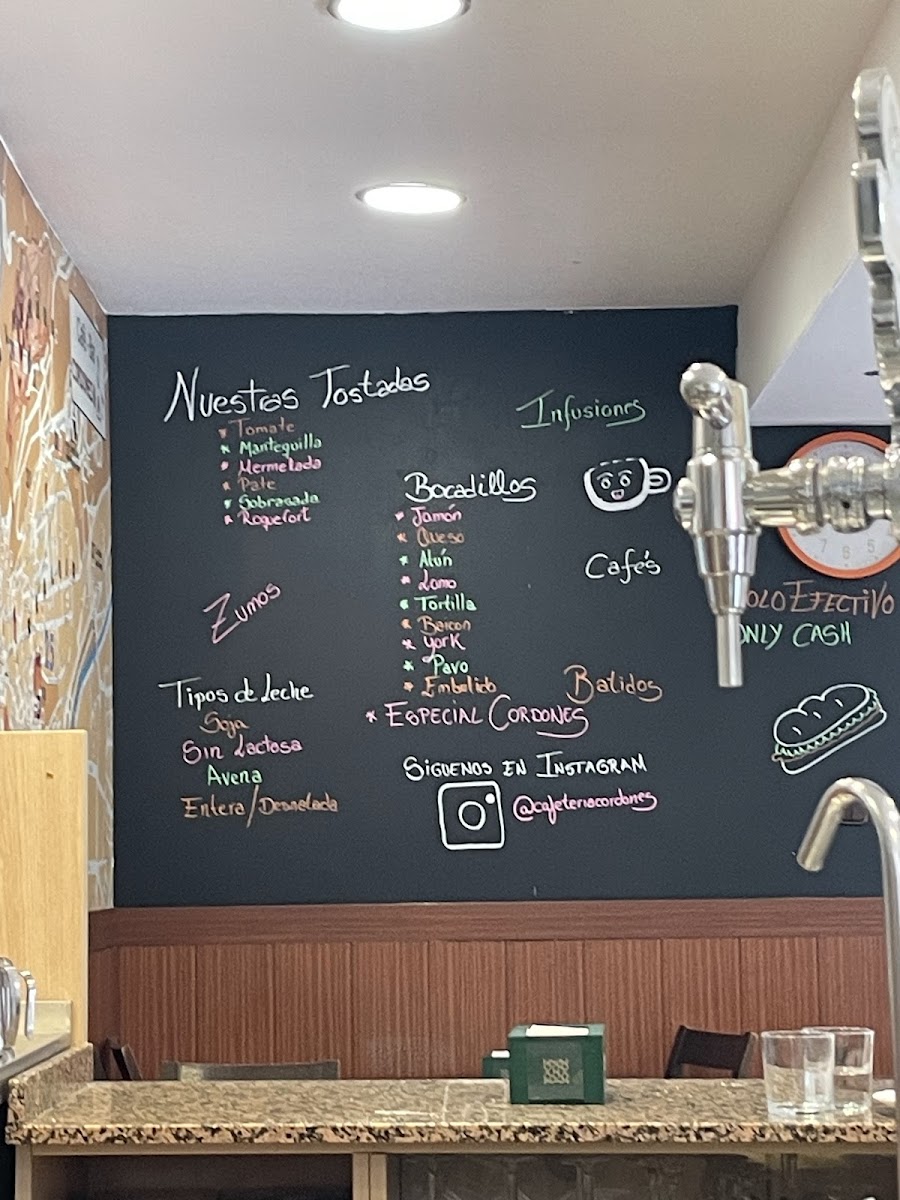 Nuestras Tostadas
* Tomate
* Mantequilla
* Mermelada
* Pate
* Sobrasada
* Roquefort
Zumos
Tipos de Leche
Soja
Sin Lactosa
Avena
Entera/Desnatada
Bocadillos
* Jamón
* Queso
* Atún
* Lomo
* Tortilla
* Baicon
* York
* Pavo
* Embutido
* ESPECIAL CORDONES
SIGUENOS EN INSTAGRAM
@cafeteriacordones
Infusiones
Cafe's
Batidos
7 6 5
OLO EFECTIVO
ONLY CASH